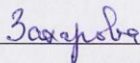 Захарова